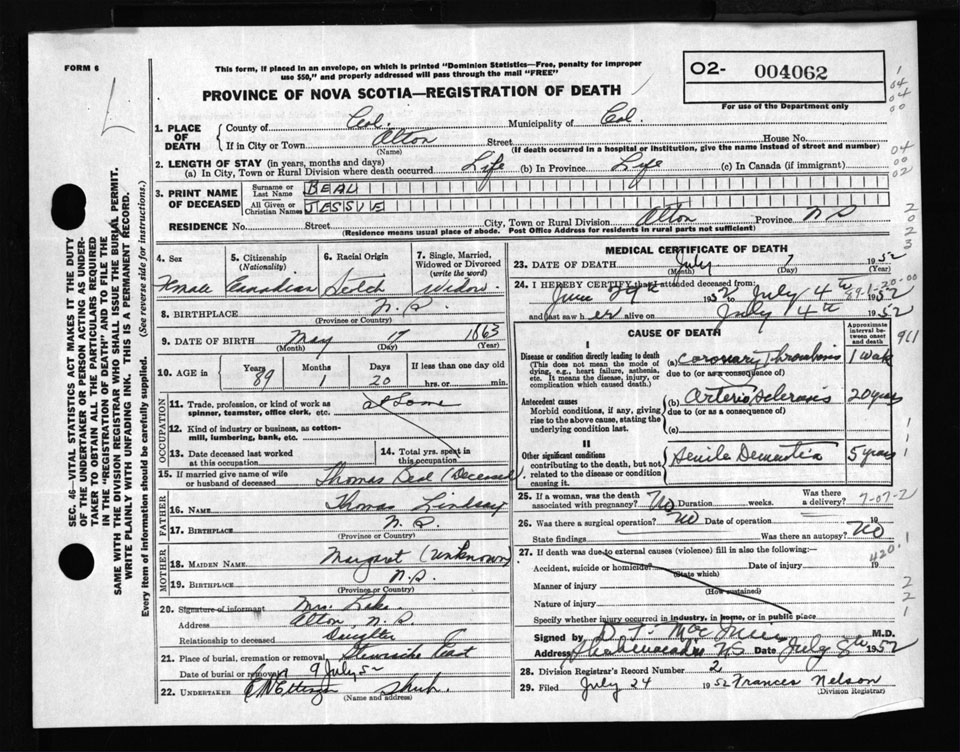 FORM 6
This form, if placed in an envelope, on which is printed "Dominion Statistics—Free, penalty for improper
use $50," and properly addressed will pass through the mail "FREE"
PROVINCE OF NOVA SCOTIA—REGISTRATION OF DEATH
O2- 004062
For use of the Department only
1. PLACE OF DEATH
County of Col. Municipality of Col.
If in City or Town Alton Street House No.
(Name) (If death occurred in a hospital or institution, give the name instead of street and number)
2. LENGTH OF STAY (in years, months and days)
(a) In City, Town or Rural Division where death occurred Life (b) In Province Life (c) In Canada (if immigrant)
3. PRINT NAME OF DECEASED
Surname or Last Name BEAL
All Given or Christian Names JESSIE
RESIDENCE No. Street City, Town or Rural Division Alton Province N S
(Residence means usual place of abode. Post Office Address for residents in rural parts not sufficient)
4. Sex Female
5. Citizenship (Nationality) Canadian
6. Racial Origin Scotch
7. Single, Married, Widowed or Divorced (write the word) Widow
8. BIRTHPLACE N.S.
(Province or Country)
9. DATE OF BIRTH May 17 1863
(Month) (Day) (Year)
10. AGE in Years Months Days If less than one day old
89 1 20 hrs. or min.
OCCUPATION
11. Trade, profession, or kind of work as spinner, teamster, office clerk, etc. at Home
12. Kind of industry or business, as cotton-mill, lumbering, bank, etc.
13. Date deceased last worked at this occupation
14. Total yrs. spent in this occupation
15. If married give name of wife or husband of deceased Thomas Beal (Deceased)
FATHER
16. NAME Thomas Lindsay
17. BIRTHPLACE N.S.
(Province or Country)
MOTHER
18. MAIDEN NAME Margaret (Unknown)
19. BIRTHPLACE N.S.
(Province or Country)
20. Signature of informant Mrs. Lake
Address Alton, N.S
Relationship to deceased Daughter
21. Place of burial, cremation or removal Stewiacke East
Date of burial or removal 9 July 5
22. UNDERTAKER Ettinger Shub.
(Name and address)
MEDICAL CERTIFICATE OF DEATH
23. DATE OF DEATH July 7 1952
(Month) (Day) (Year)
24. I HEREBY CERTIFY that I attended deceased from:
June 29th 1952 to July 4th 1952
89-1-20-00
and last saw h er alive on July 4th 1952
CAUSE OF DEATH
Approximate interval between onset and death
I
Disease or condition directly leading to death
(This does not mean the mode of dying, e.g., heart failure, asthenia, etc. It means the disease, injury, or complication which caused death.)
(a) Coronary thrombosis 1 week
due to (or as a consequence of)
Antecedent causes
Morbid conditions, if any, giving rise to the above cause, stating the underlying condition last.
(b) Arterio Sclerosis 20 years
due to (or as a consequence of)
(c)
II
Other significant conditions
contributing to the death, but not related to the disease or condition causing it.
Senile Dementia 5 years
25. If a woman, was the death associated with pregnancy? No Duration weeks. Was there a delivery?
26. Was there a surgical operation? No Date of operation 19
State findings Was there an autopsy? No
27. If death was due to external causes (violence) fill in also the following:—
Accident, suicide or homicide? Date of injury 19
(State which)
Manner of injury
(How sustained)
Nature of injury
Specify whether injury occurred in industry, in home, or in public place
Signed by M.D.
Address Shubenacadie N S Date July 8th 1952
28. Division Registrar's Record Number 2
29. Filed July 24 1952 Frances Nelson
(Division Registrar)
SEC. 46—VITAL STATISTICS ACT MAKES IT THE DUTY
OF THE UNDERTAKER OR PERSON ACTING AS UNDER-
TAKER TO OBTAIN ALL THE PARTICULARS REQUIRED
IN THE "REGISTRATION OF DEATH" AND TO FILE THE
SAME WITH THE DIVISION REGISTRAR WHO SHALL ISSUE THE BURIAL PERMIT.
WRITE PLAINLY WITH UNFADING INK. THIS IS A PERMANENT RECORD.
Every item of information should be carefully supplied. (See reverse side for instructions.)
04
00
02
2
0
2
3
7-07-2
420.1
2
2
1